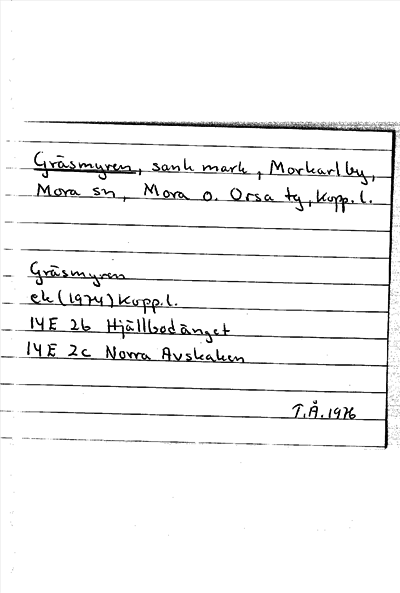 Gräsmyren, sank mark, Morkarlby,
Mora sn, Mora o. Orsa tg, Kopp. l.
Gräsmyren
ek (1974) Kopp. l.
14E 2b Hjällbodänget
14E 2c Norra Avskaken
T.Å. 1976